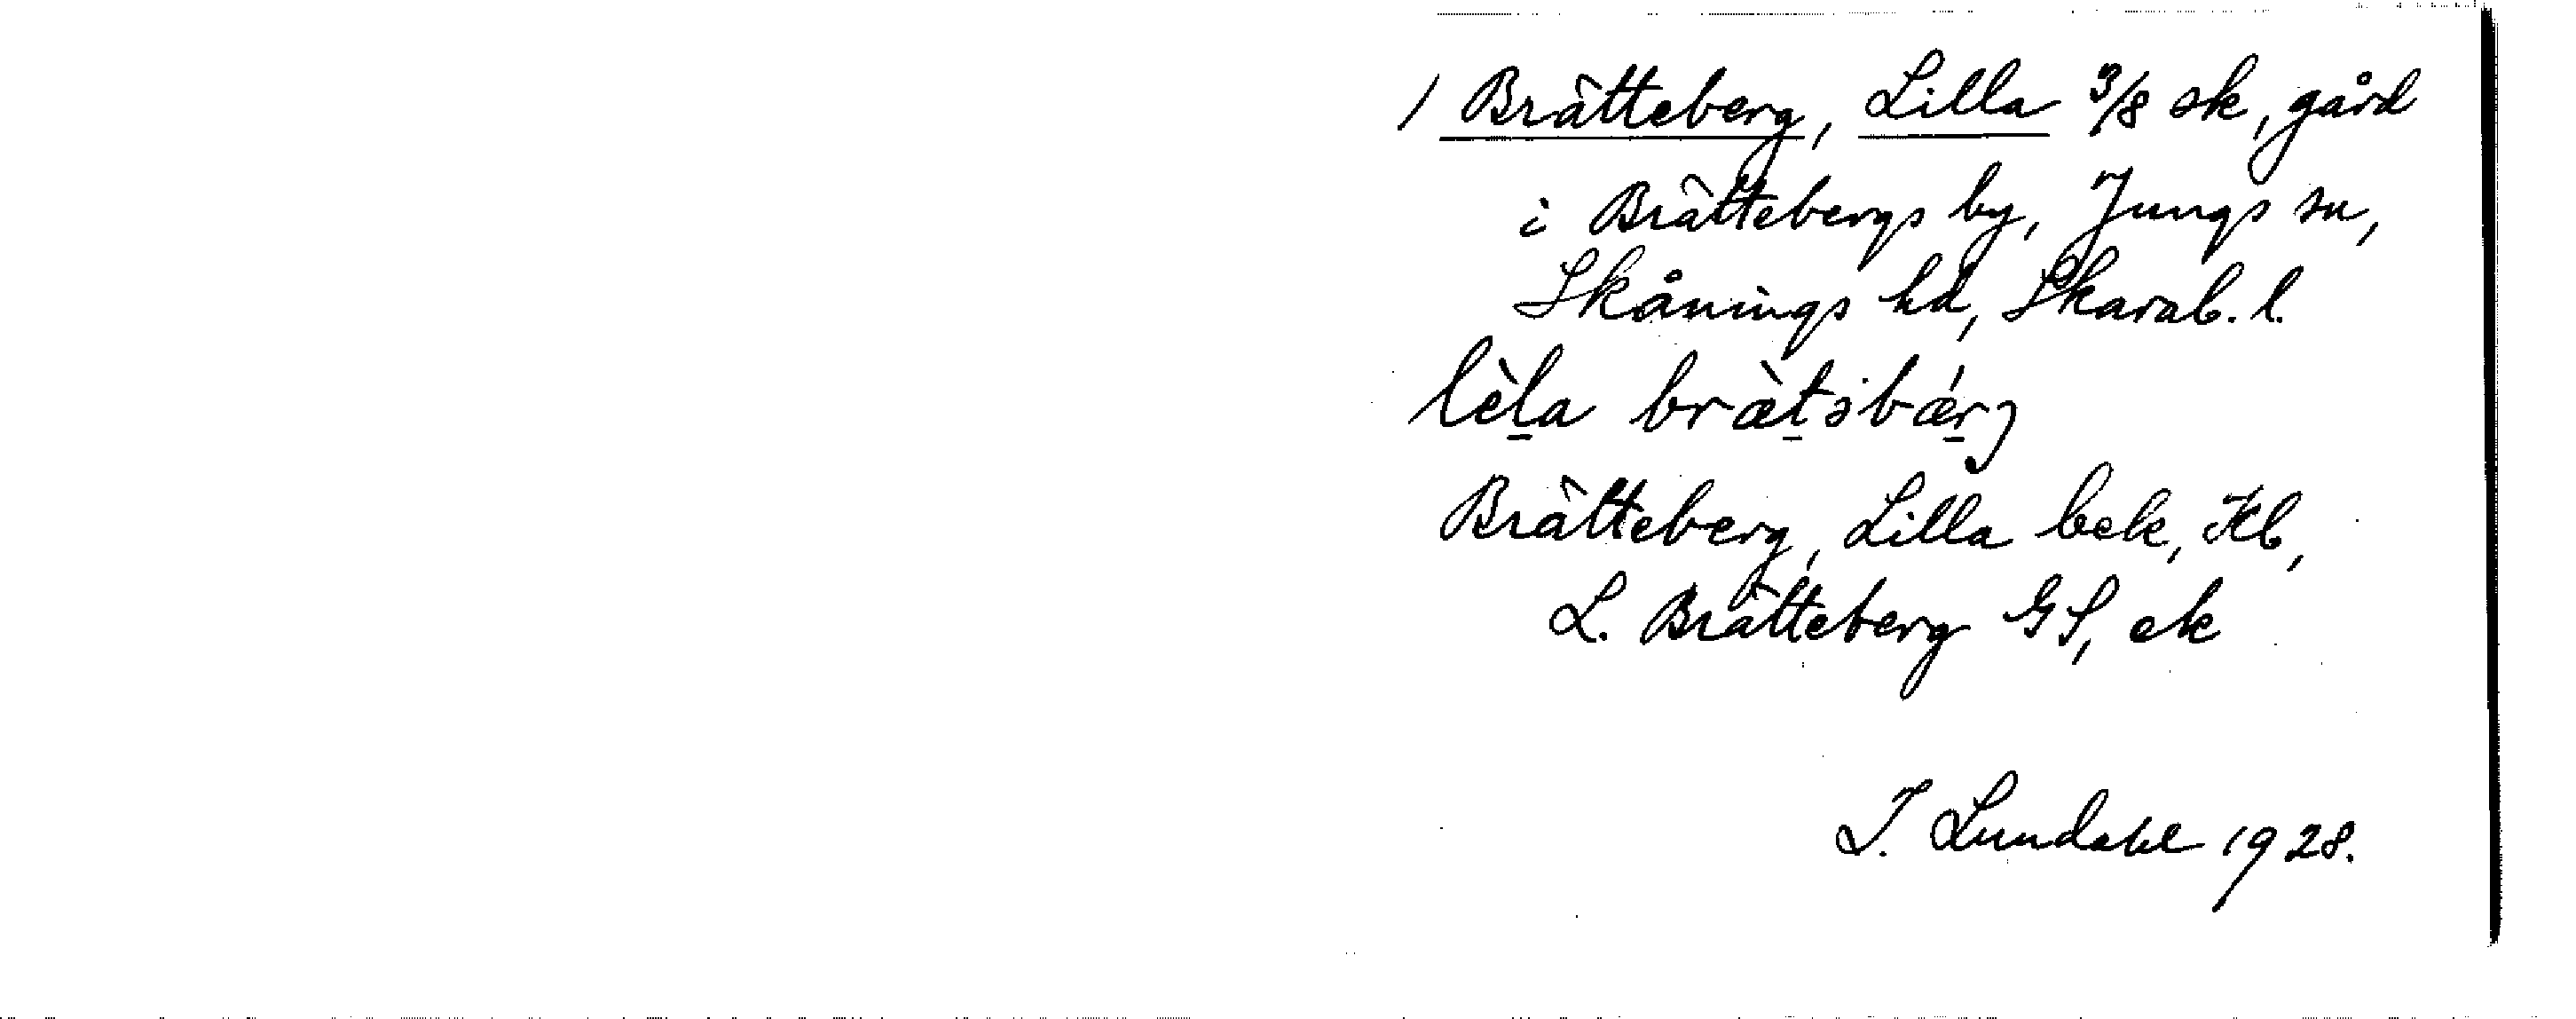 / Brätteberg, Lilla 3/8 sk, gård
i Brättebergs by, Jungs sn,
Skånings hd, Skarab. l.
lèl̠a bræ̀t̠əbǽr̠j
Brätteberg, Lilla bek, Kb,
L. Brätteberg GS, ek
I. Lundahl 1928.